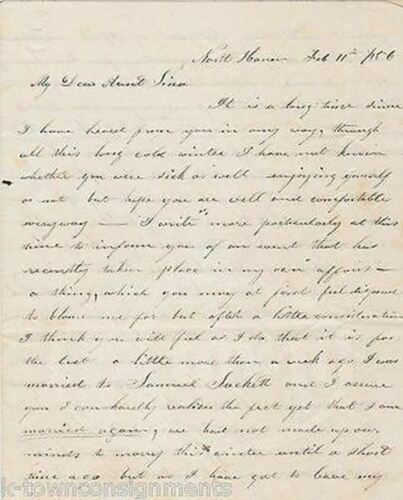 North Haven Feb 11th 1856
My Dear Aunt Sina
It is a long time since
I have heard from you in any way, through
all this long cold winter I have not known
whether you were sick or well enjoying yourself
or not but hope you are well and comfortable
everyway — I write more particularly at this
time to inform you of an event that has
recently taken place in my own affairs —
a thing, which you may at first feel disposed
to blame me for but after a little consideration
I think you will feel as I do that it is for
the best a little more than a week ago I was
married to Samuel Sackett and I assure
you I can hardly realize the fact yet that I am
married again, we had not made up our
minds to marry this winter until a short
time ago but as I have got to leave my
k-townconsignments